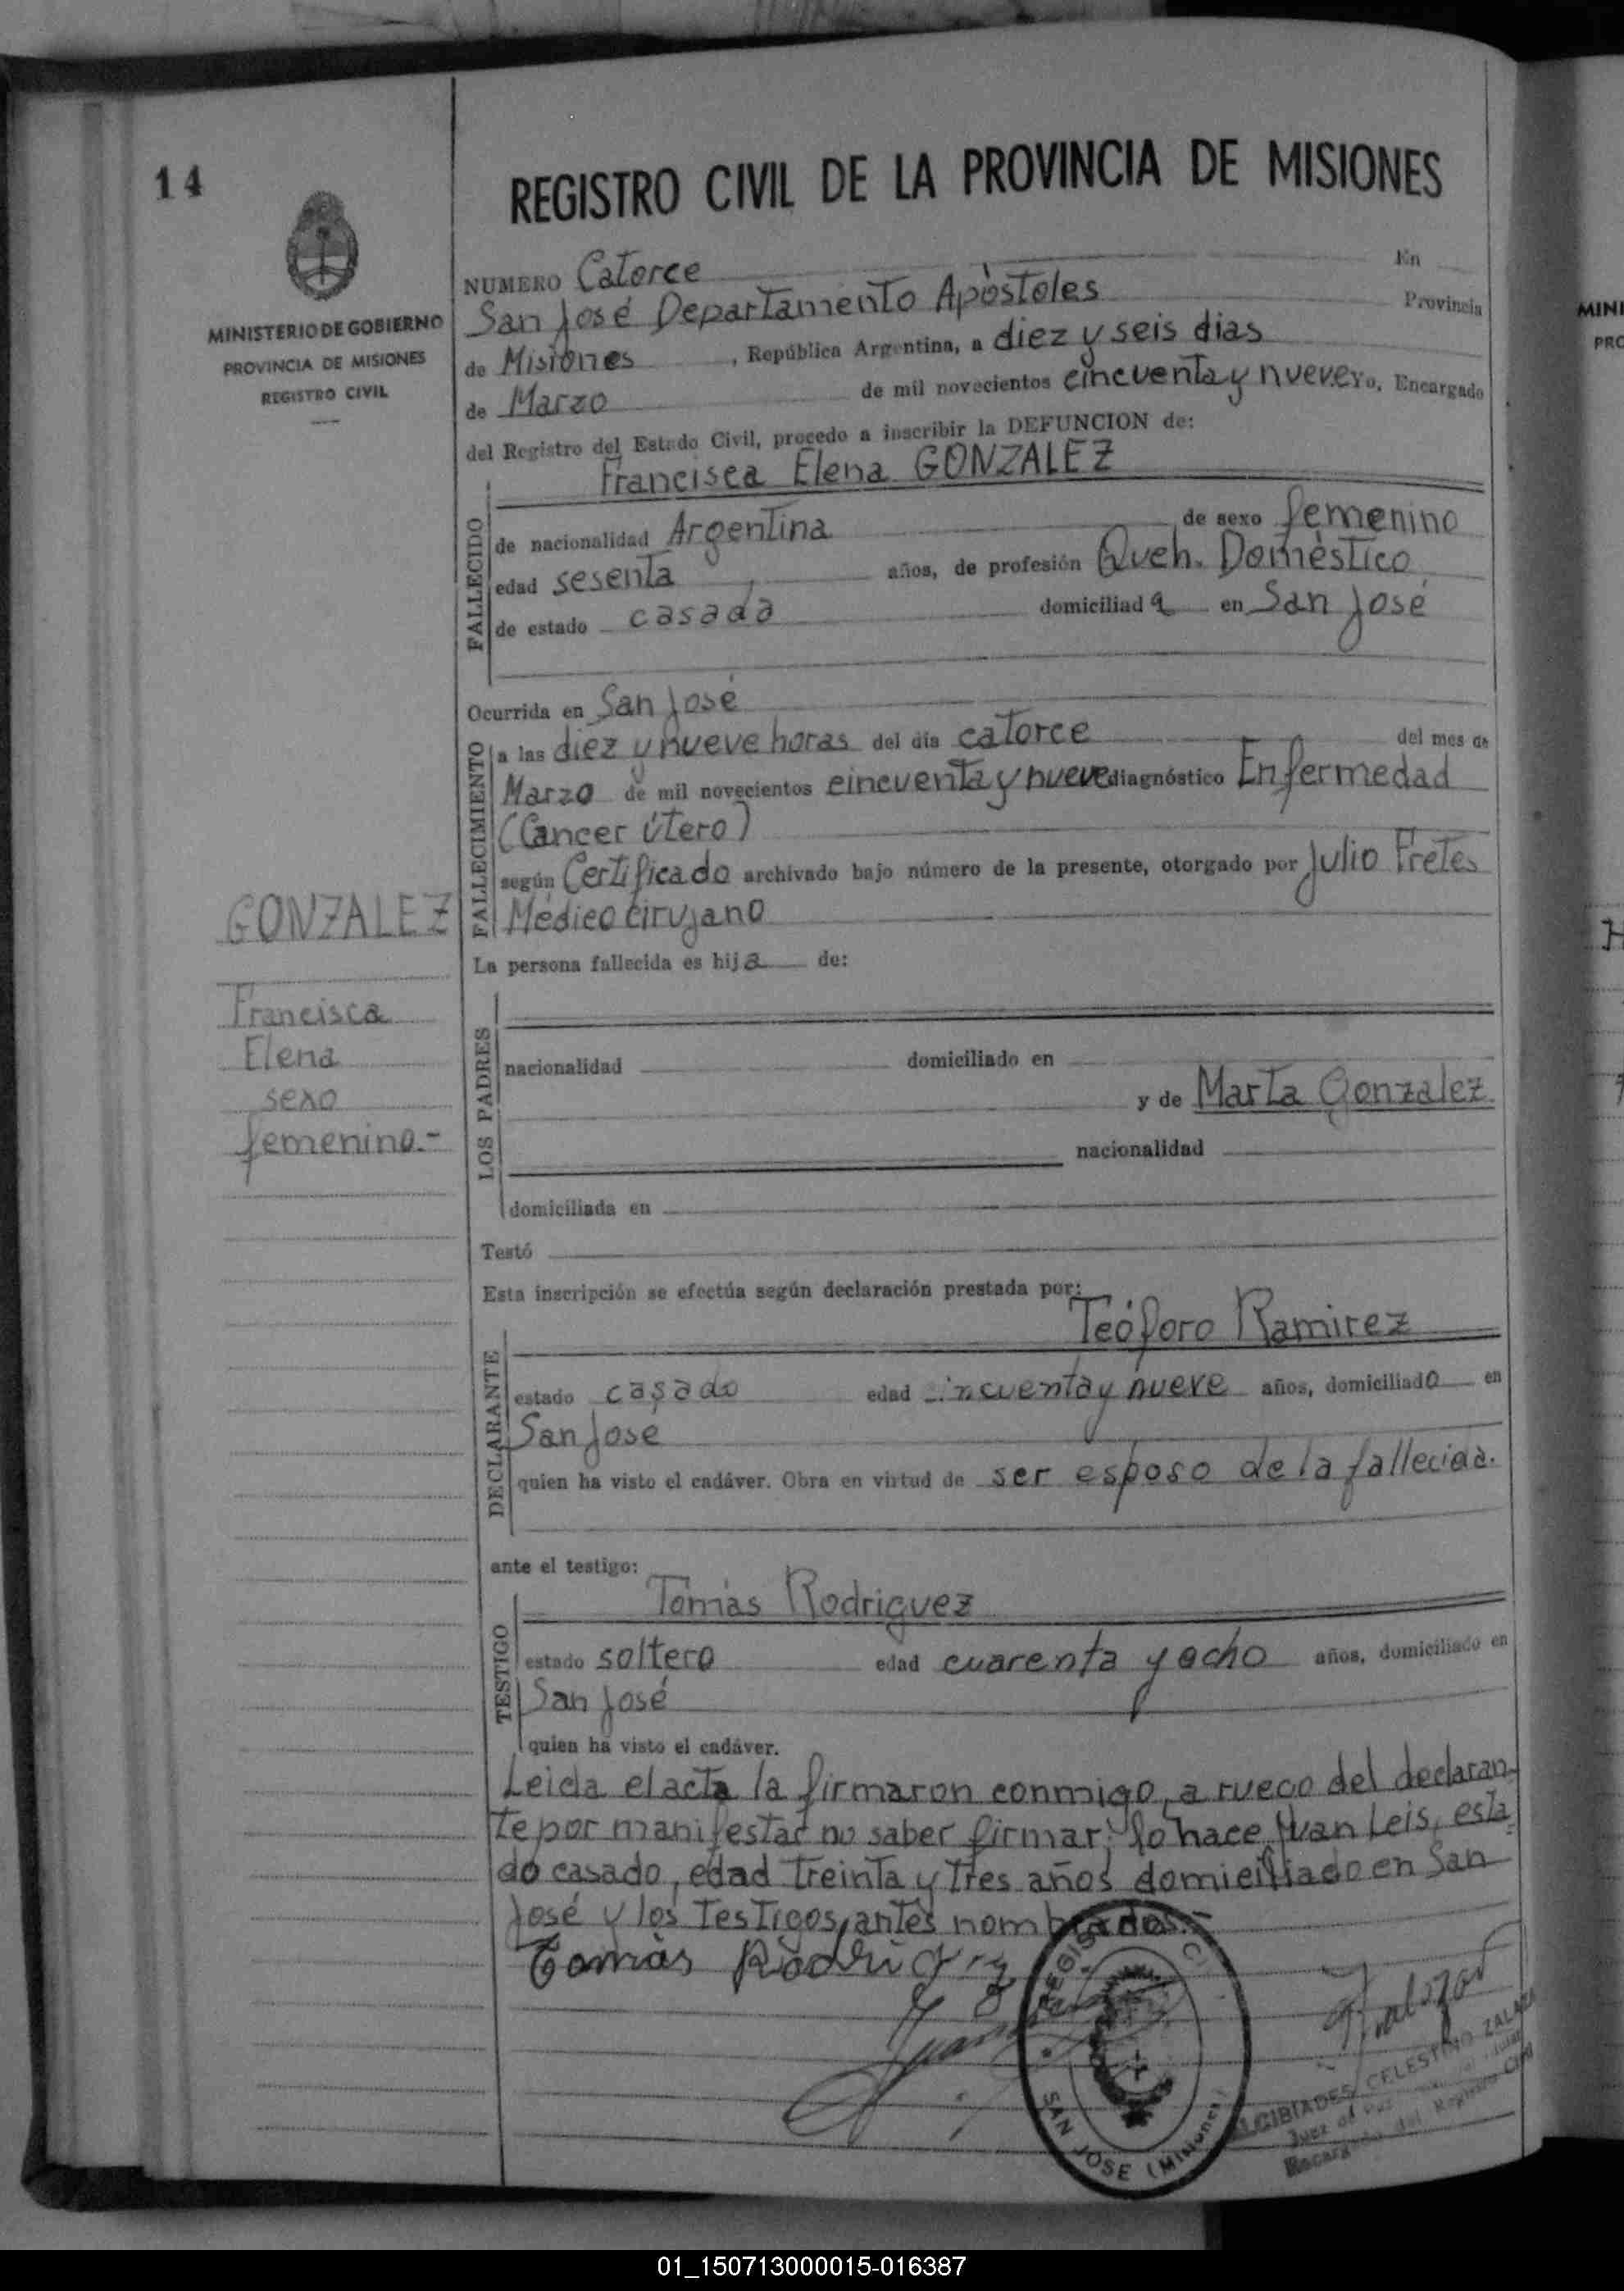 14
MINISTERIO DE GOBIERNO
PROVINCIA DE MISIONES
REGISTRO CIVIL
REGISTRO CIVIL DE LA PROVINCIA DE MISIONES
NUMERO Catorce En
San José Departamento Apòstoles Provincia
de Misiones, República Argentina, a diez y seis dias
de Marzo de mil novecientos cincuenta y nueve Yo, Encargado
del Registro del Estado Civil, procedo a inscribir la DEFUNCION de:
Francisca Elena GONZALEZ
FALLECIDO
de nacionalidad Argentina de sexo femenino
edad sesenta años, de profesión Queh. Domèstico
de estado casada domiciliada en San José
Ocurrida en San José
FALLECIMIENTO
a las diez y nueve horas del dia catorce del mes de
Marzo de mil novecientos cincuenta y nueve diagnóstico Enfermedad
(Cancer útero)
según Certificado archivado bajo número de la presente, otorgado por Julio Fretes
Médico cirujano
GONZALEZ
Francisca
Elena
sexo
femenino.-
La persona fallecida es hija de:
LOS PADRES
nacionalidad domiciliado en
y de Marta Gonzalez
nacionalidad
domiciliada en
Testó
Esta inscripción se efectúa según declaración prestada por:
Teóforo Ramirez
DECLARANTE
estado casado edad cincuenta y nueve años, domiciliado en
San José
quien ha visto el cadáver. Obra en virtud de ser esposo de la fallecida.
ante el testigo:
Tomás Rodriguez
TESTIGO
estado soltero edad cuarenta y ocho años, domiciliado en
San José
quien ha visto el cadáver.
Leida el acta la firmaron conmigo, a ruego del declaran-
te por manifestar no saber firmar, lo hace Juan Leis, esta
do casado, edad treinta y tres años domiciliado en San
José y los testigos, antes nombrados.-
Tomás Rodriguez
REGISTRO CI
SAN JOSE (Misiones)
ALCIBIADES CELESTINO ZALAZA
Juez de Paz
Encargado del Registro Civil
01_150713000015-016387